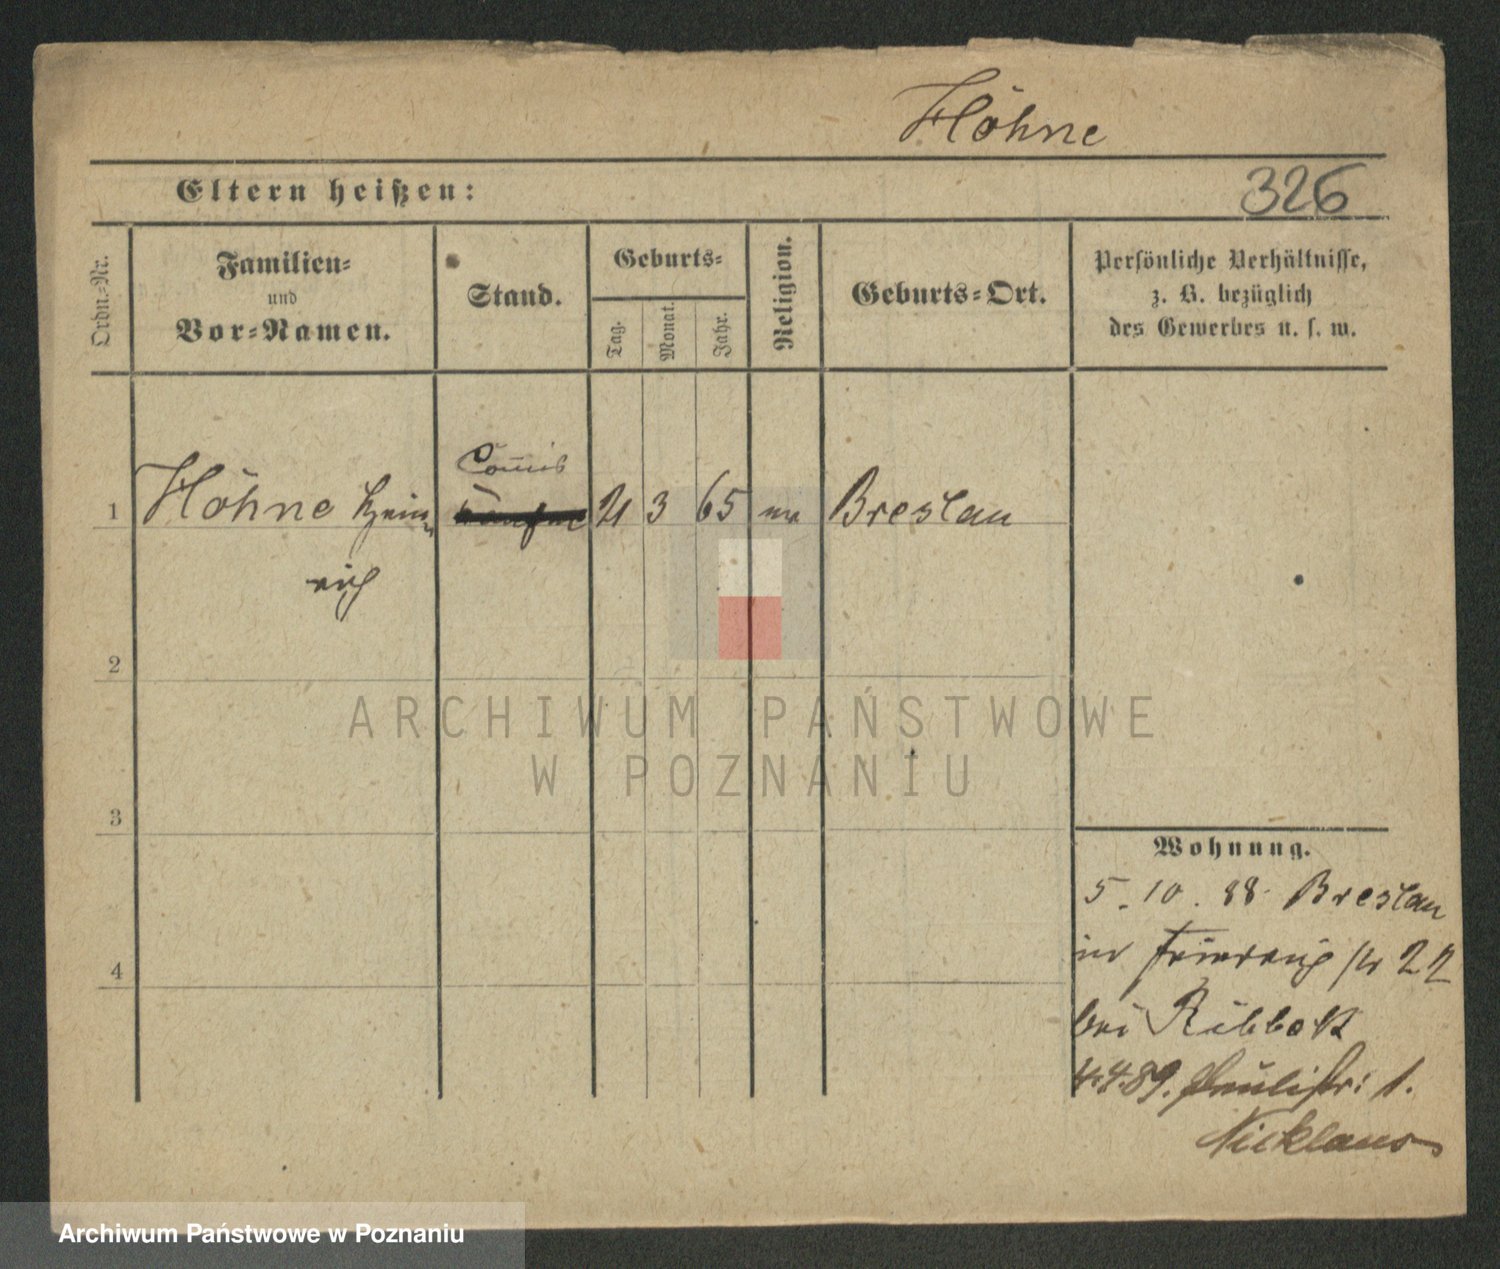 Höhne
Eltern heißen:
326
Ordn.-Nr.
Familien-
und
Vor-Namen.
Stand.
Geburts-
Tag.
Monat.
Jahr.
Religion.
Geburts-Ort.
Persönliche Verhältnisse,
z. B. bezüglich
des Gewerbes u. s. w.
Comis
1 Höhne Hein- 21 3 65 ev Breslau
rich
2
3
4
Wohnung.
5. 10. 88. Breslau
22
bei Ribbek
4.4.89. Paulistr: 1.
Nicklaus
ARCHIWUM PAŃSTWOWE
W POZNANIU
Archiwum Państwowe w Poznaniu